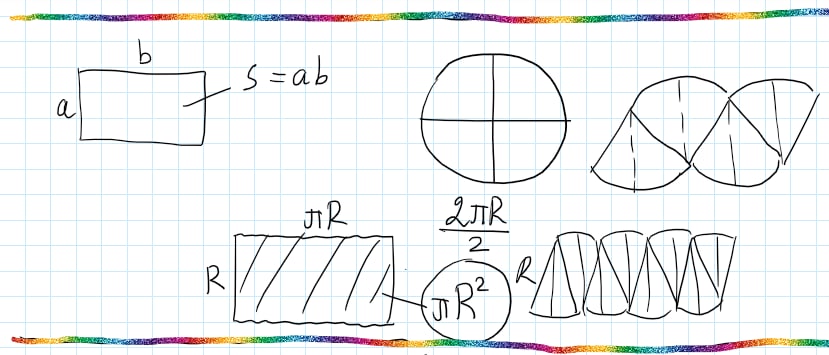 b
a
S = ab
πR
R
2πR
2
πR²
R